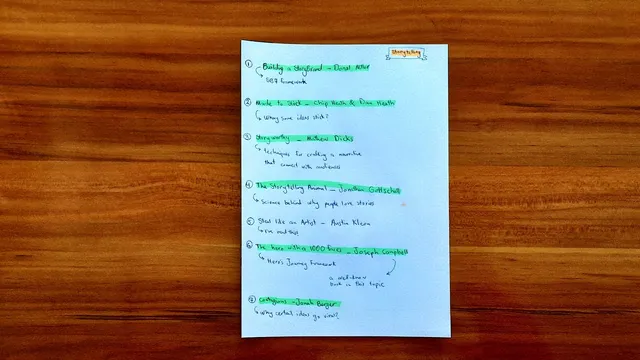 Storytelling
1 Building a Storybrand - Donal Miller
SB7 Framework
2 Made to Stick - Chip Heath & Dan Heath
Why some ideas stick?
3 Storyworthy - Mathew Dicks
techniques for crafting a narrative
that connect with audiences
4 The Storytelling Animal - Jonathan Gottschall
Science behind why people love stories
5 Steal like an Artist - Austin Kleon
I've read this
6 The hero with a 1000 faces - Joseph Campbell
Hero's Journey Framework
a well-known
book in this topic
7 Contagious - Jonah Berger
Why certain ideas go viral?